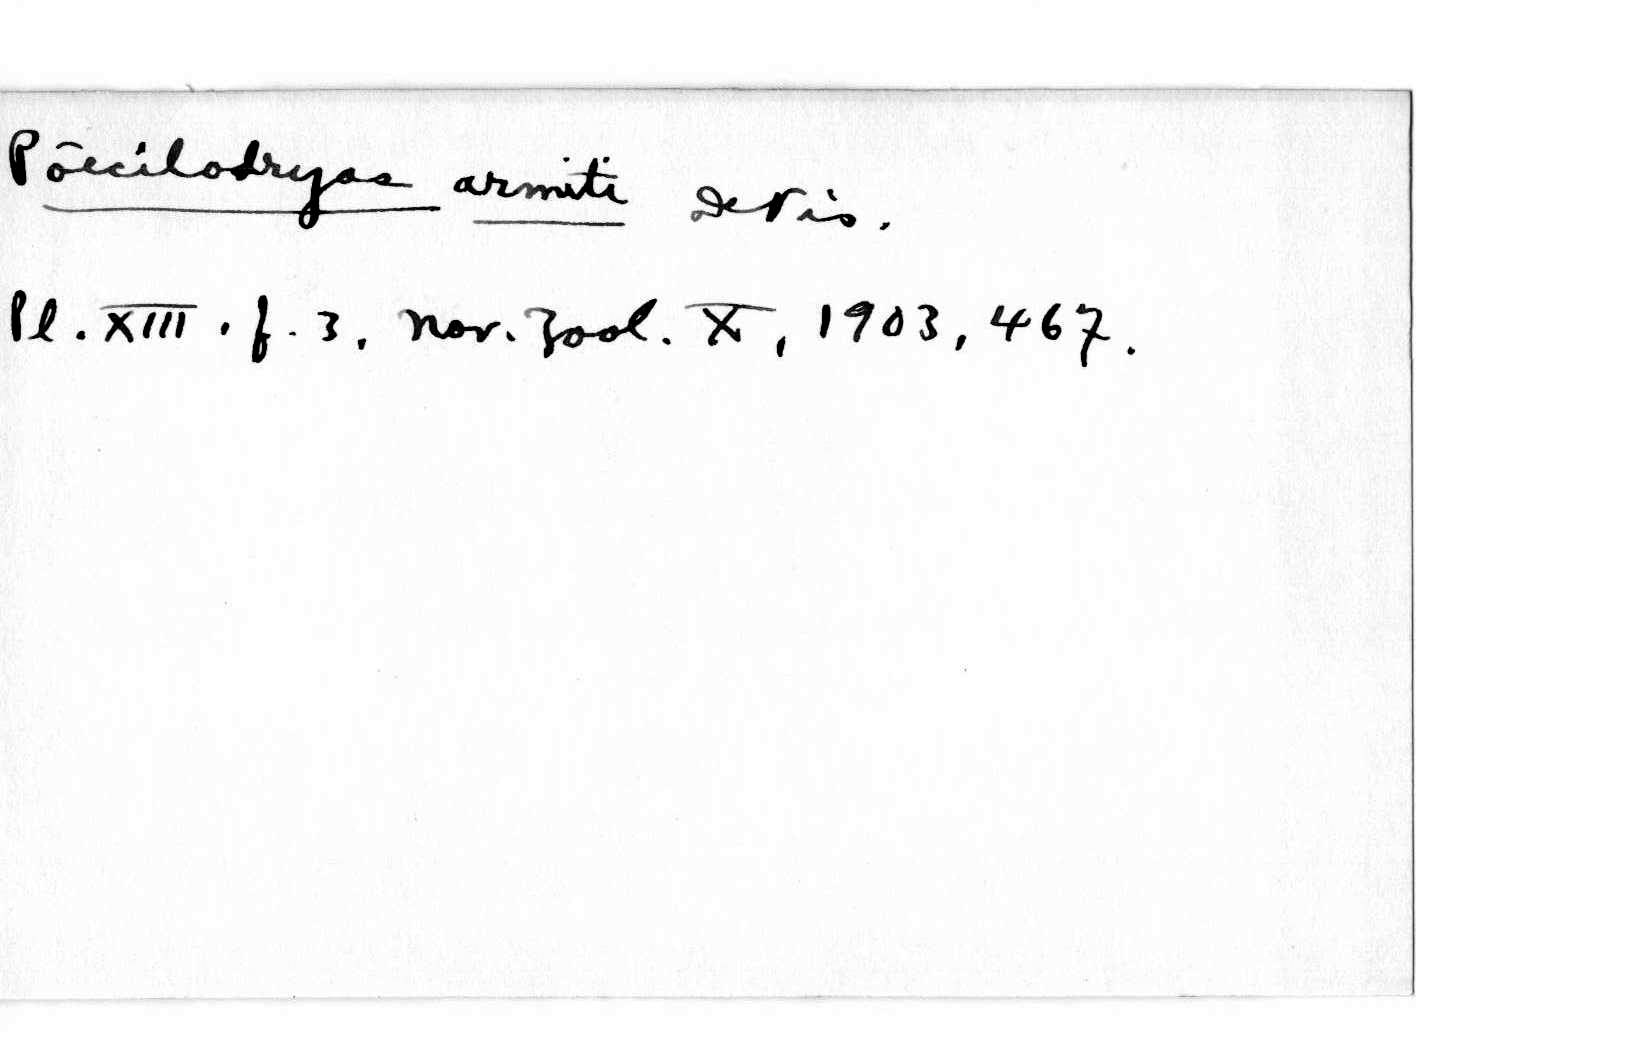 Pōecilodryas armiti de Vis.
Pl. XIII. f. 3, Nov. Zool. X, 1903, 467.